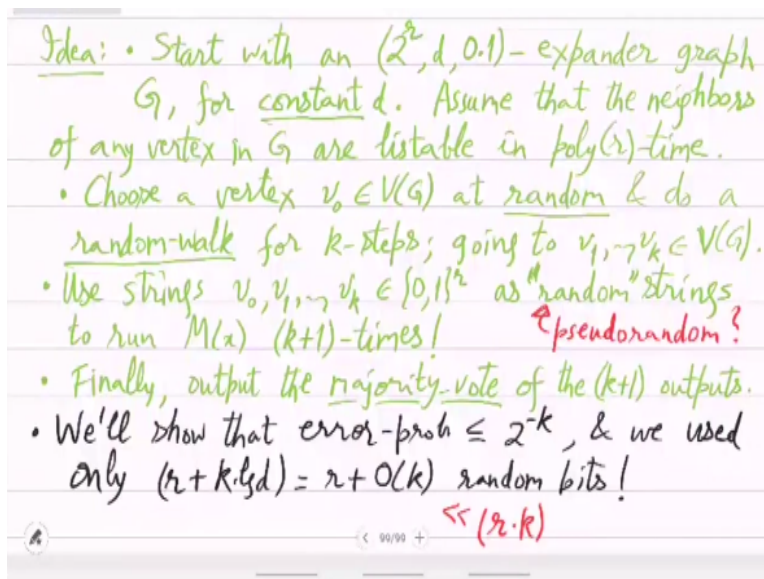 Idea: • Start with an (2^r, d, 0.1) - expander graph
G, for constant d. Assume that the neighbors
of any vertex in G are listable in poly(r)-time.
• Choose a vertex v₀ ∈ V(G) at random & do a
random-walk for k-steps; going to v₁,⋯,vₖ ∈ V(G).
• Use strings v₀, v₁,⋯, vₖ ∈ {0,1}^r as "random" strings
to run M(x) (k+1)-times! ↑pseudorandom?
• Finally, output the majority-vote of the (k+1) outputs.
• We'll show that error-prob ≤ 2^-k, & we used
only (r + k·lgd) = r + O(k) random bits!
<< (r·k)
< 99/99 +